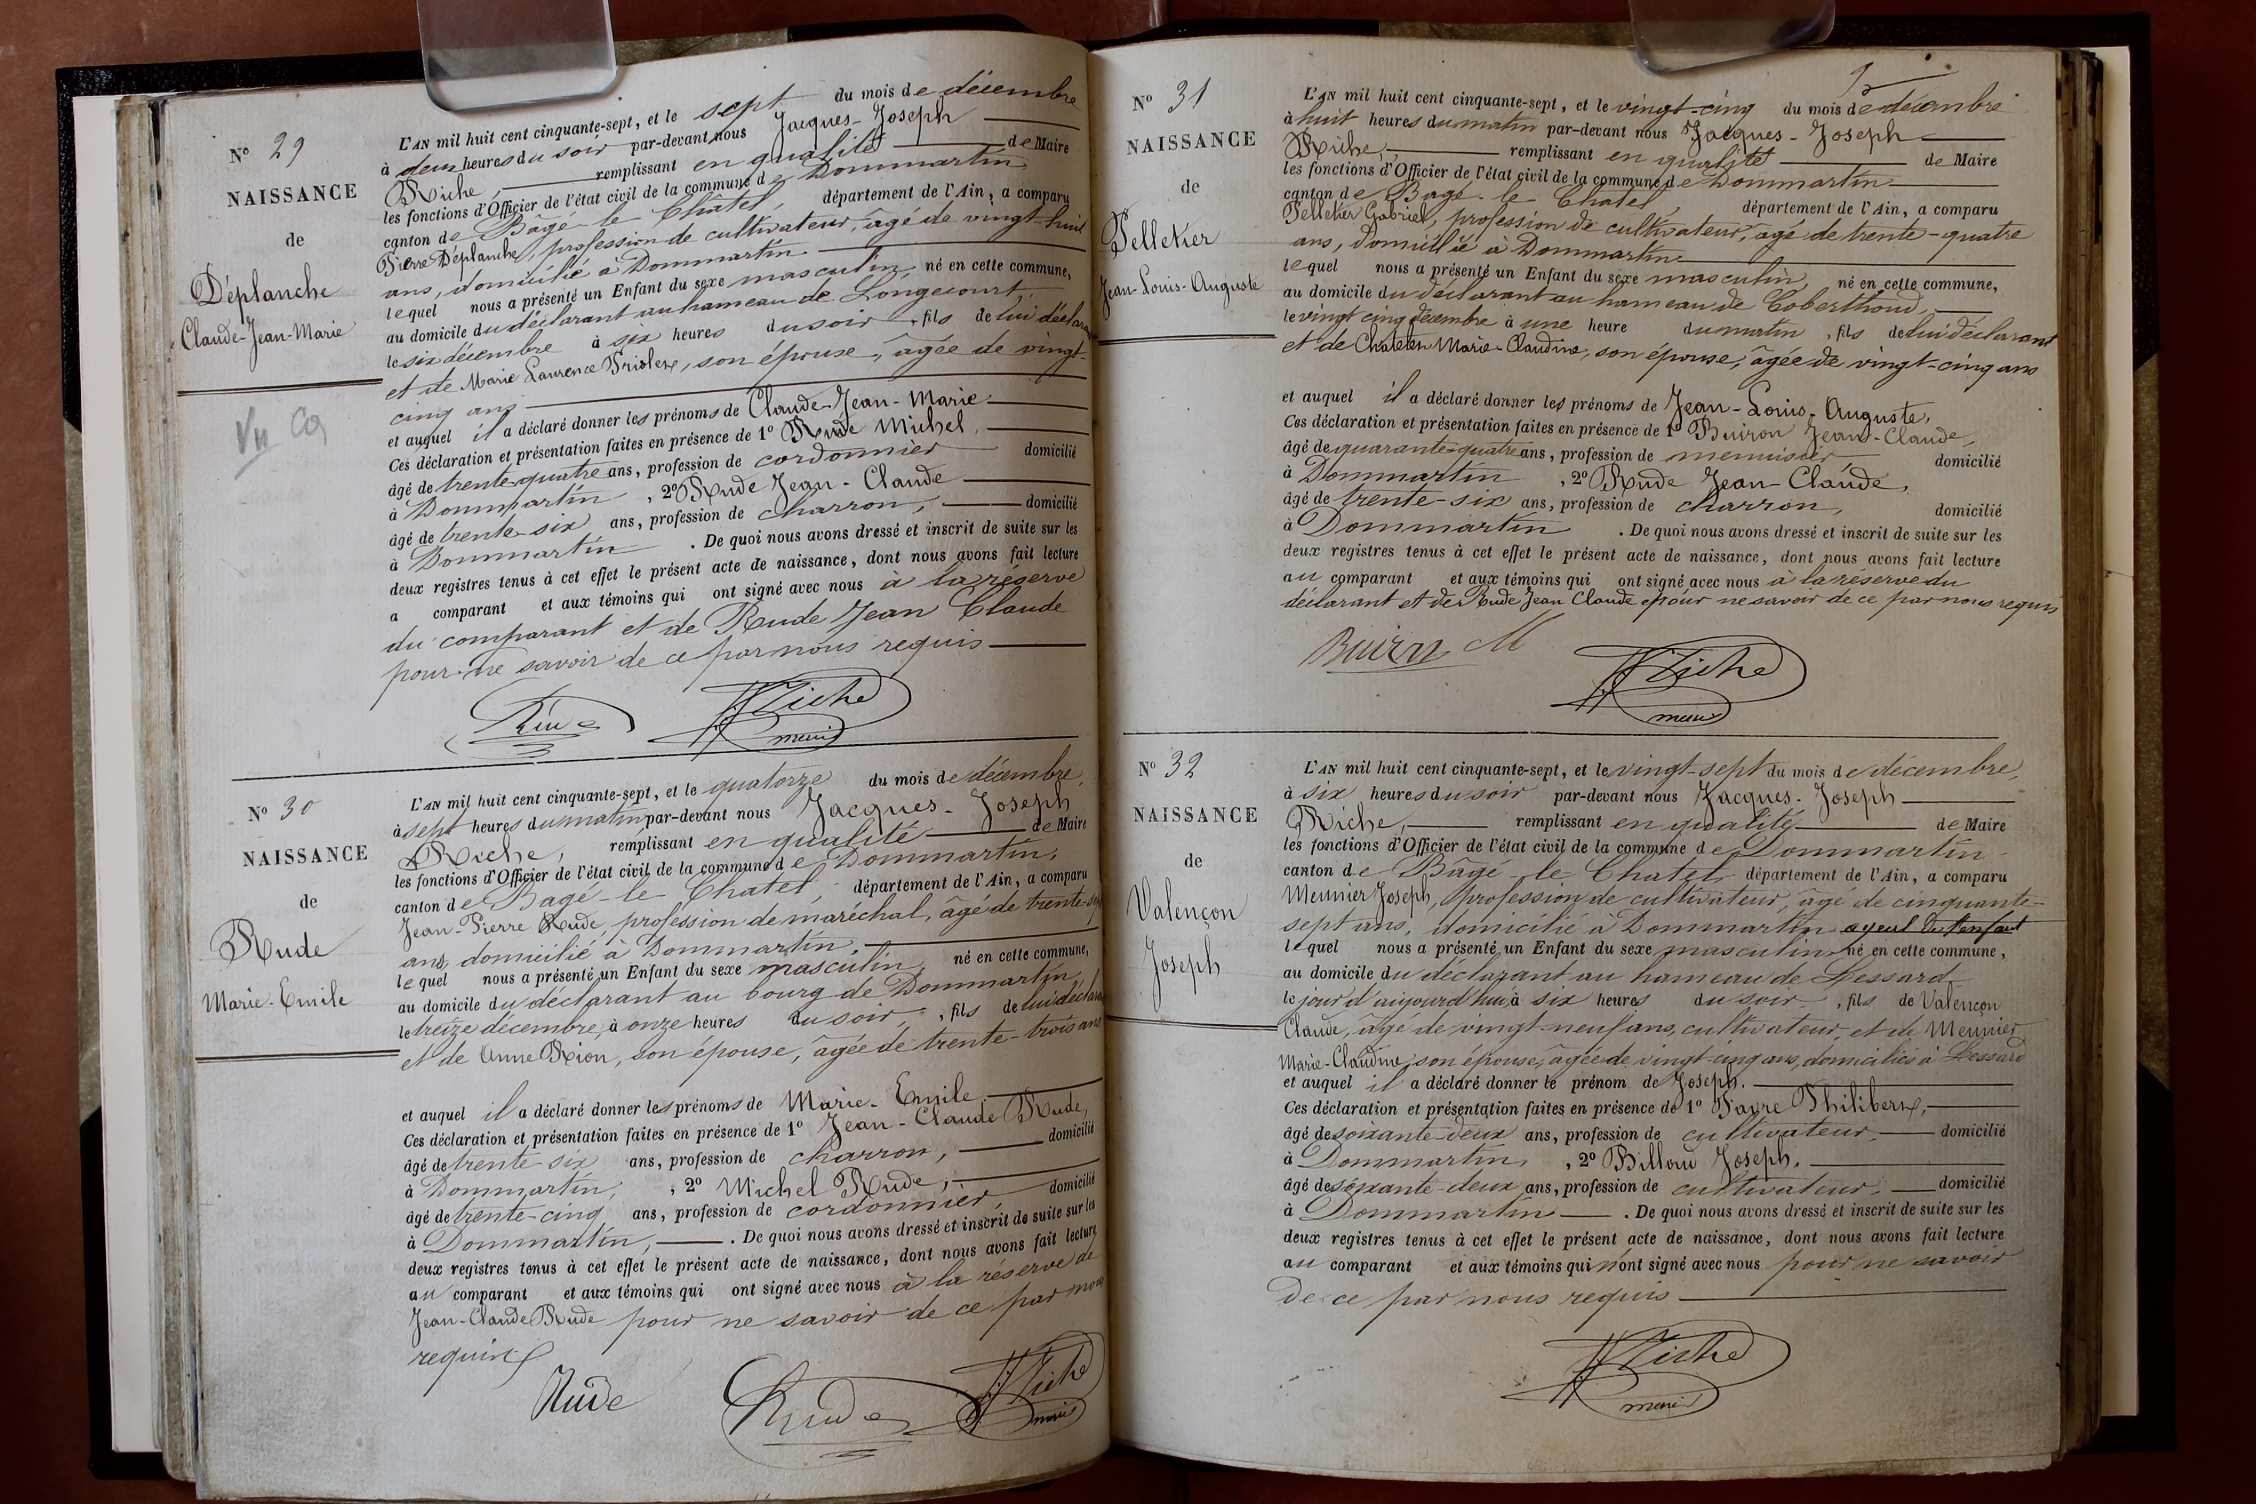 N° 29
NAISSANCE
de
Déplanche
Claude-Jean-Marie
Vu
L'AN mil huit cent cinquante-sept, et le sept du mois de décembre
à deux heures du soir par-devant nous Jacques-Joseph
Riche, remplissant en qualité de Maire
les fonctions d'Officier de l'état civil de la commune de Dommartin
canton de Bâgé-le Châtel, département de l'Ain, a comparu
Pierre Déplanche, profession de cultivateur, âgé de vingt-huit
ans, domicilié à Dommartin
lequel nous a présenté un Enfant du sexe masculin, né en cette commune,
au domicile du déclarant au hameau de Longecourt,
le six décembre à six heures du soir, fils de lui déclarant
et de Marie Laurence, son épouse, âgée de vingt-
cinq ans
et auquel il a déclaré donner les prénoms de Claude-Jean-Marie
Ces déclaration et présentation faites en présence de 1° Rude Michel,
âgé de trente-quatre ans, profession de cordonnier domicilié
à Dommartin, 2° Rude Jean-Claude
âgé de trente-six ans, profession de charron, domicilié
à Dommartin. De quoi nous avons dressé et inscrit de suite sur les
deux registres tenus à cet effet le présent acte de naissance, dont nous avons fait lecture
a comparant et aux témoins qui ont signé avec nous à la réserve
du comparant et de Rude Jean Claude
pour ne savoir de ce par nous requis
Rude Riche
maire
N° 30
NAISSANCE
de
Rude
Marie-Emile
L'AN mil huit cent cinquante-sept, et le quatorze du mois de décembre,
à sept heures du matin par-devant nous Jacques-Joseph
Riche, remplissant en qualité de Maire
les fonctions d'Officier de l'état civil de la commune de Dommartin,
canton de Bagé-le Chatel, département de l'Ain, a comparu
Jean-Pierre Rude, profession de maréchal, âgé de trente-sept
ans, domicilié à Dommartin.
lequel nous a présenté un Enfant du sexe masculin, né en cette commune,
au domicile du déclarant au bourg de Dommartin,
le treize décembre, à onze heures du soir, fils de lui déclarant
et de Anne Rion, son épouse, âgée de trente-trois ans
et auquel il a déclaré donner les prénoms de Marie-Emile.
Ces déclaration et présentation faites en présence de 1° Jean-Claude Rude,
âgé de trente-six ans, profession de charron, domicilié
à Dommartin, 2° Michel Rude,
âgé de trente-cinq ans, profession de cordonnier domicilié
à Dommartin,. De quoi nous avons dressé et inscrit de suite sur les
deux registres tenus à cet effet le présent acte de naissance, dont nous avons fait lecture
au comparant et aux témoins qui ont signé avec nous à la réserve de
Jean-Claude Rude pour ne savoir de ce par nous
requis
Rude Rude Riche
maire
N° 31
NAISSANCE
de
Pelletier
Jean-Louis-Auguste
L'AN mil huit cent cinquante-sept, et le vingt-cinq du mois de décembre
à huit heures du matin par-devant nous Jacques-Joseph
Riche, remplissant en qualité de Maire
les fonctions d'Officier de l'état civil de la commune de Dommartin
canton de Bagé-le Chatel, département de l'Ain, a comparu
Pelletier Gabriel, profession de cultivateur, âgé de trente-quatre
ans, domicilié à Dommartin
lequel nous a présenté un Enfant du sexe masculin, né en cette commune,
au domicile du déclarant au hameau de Coberthoud,
le vingt cinq décembre à une heure du matin, fils de lui déclarant
et de Chatelet Marie-Claudine, son épouse, âgée de vingt-cinq ans
et auquel il a déclaré donner les prénoms de Jean-Louis-Auguste,
Ces déclaration et présentation faites en présence de 1° Buiron Jean-Claude,
âgé de quarante-quatre ans, profession de menuisier domicilié
à Dommartin, 2° Rude Jean-Claude,
âgé de trente-six ans, profession de charron, domicilié
à Dommartin. De quoi nous avons dressé et inscrit de suite sur les
deux registres tenus à cet effet le présent acte de naissance, dont nous avons fait lecture
au comparant et aux témoins qui ont signé avec nous à la réserve du
déclarant et de Rude Jean Claude pour ne savoir de ce par nous requis
Buirn M Riche
maire
N° 32
NAISSANCE
de
Valençon
Joseph
L'AN mil huit cent cinquante-sept, et le vingt-sept du mois de décembre,
à six heures du soir par-devant nous Jacques-Joseph
Riche, remplissant en qualité de Maire
les fonctions d'Officier de l'état civil de la commune de Dommartin
canton de Bâgé-le Chatel, département de l'Ain, a comparu
Meunier Joseph, profession de cultivateur, âgé de cinquante-
sept ans, domicilié à Dommartin ayeul de l'enfant
lequel nous a présenté un Enfant du sexe masculin né en cette commune,
au domicile du déclarant au hameau de Lessard
le jour d'aujourd'hui, à six heures du soir, fils de Valençon
Claude, âgé de vingt-neuf ans, cultivateur, et de Meunier
Marie-Claudine, son épouse, âgée de vingt-cinq ans, domiciliés à Lessard
et auquel il a déclaré donner le prénom de Joseph.
Ces déclaration et présentation faites en présence de 1° Favre Philibert,
âgé de soixante-deux ans, profession de cultivateur, domicilié
à Dommartin, 2° Billoud Joseph.
âgé de soixante-deux ans, profession de cultivateur, domicilié
à Dommartin. De quoi nous avons dressé et inscrit de suite sur les
deux registres tenus à cet effet le présent acte de naissance, dont nous avons fait lecture
au comparant et aux témoins qui n'ont signé avec nous pour ne savoir
de ce par nous requis
Riche
maire